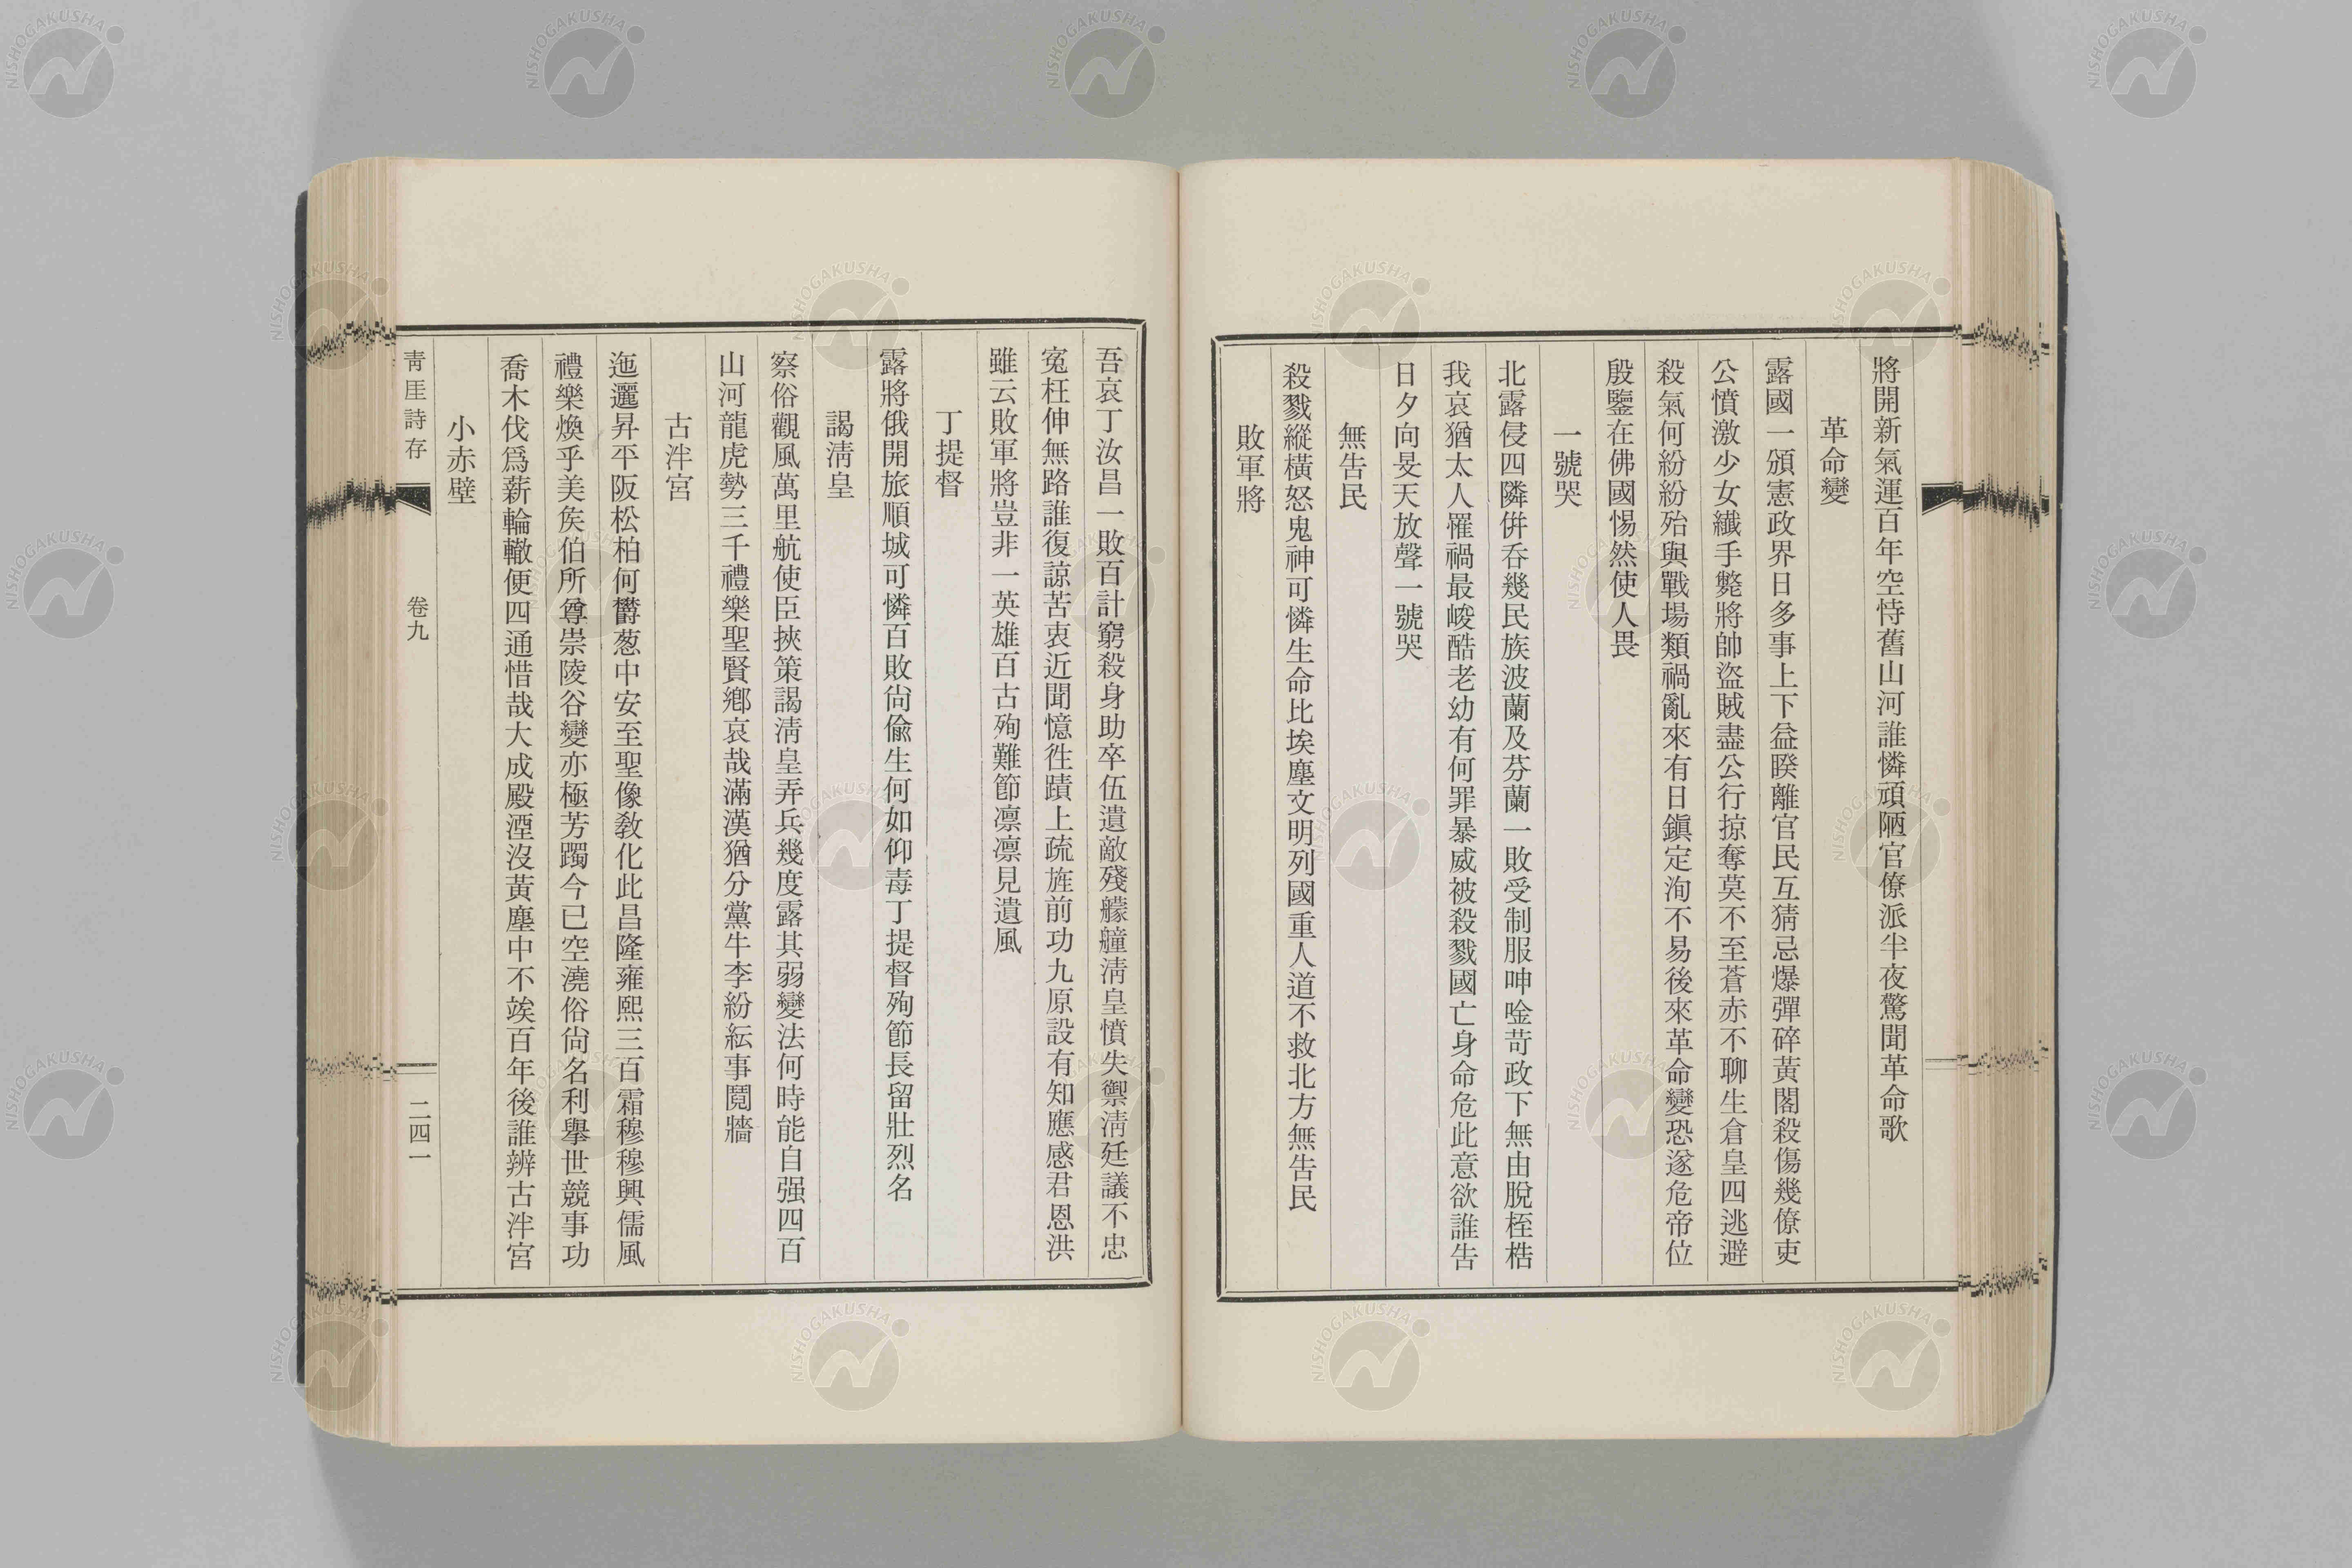 將開新氣運百年空恃舊山河誰憐頑陋官僚派半夜驚聞革命歌
革命變
露國一頒憲政界日多事上下益睽離官民互猜忌爆彈碎黃閣殺傷幾僚吏
公憤激少女纖手斃將帥盜賊盡公行掠奪莫不至蒼赤不聊生倉皇四逃避
殺氣何紛紛殆與戰場類禍亂來有日鎭定洵不易後來革命變恐遂危帝位
殷鑒在佛國惕然使人畏
一號哭
北露侵四隣併呑幾民族波蘭及芬蘭一敗受制服呻唫苛政下無由脫桎梏
我哀猶太人罹禍最峻酷老幼有何罪暴威被殺戮國亡身命危此意欲誰告
日夕向旻天放聲一號哭
無告民
殺戮縱橫怒鬼神可憐生命比埃塵文明列國重人道不救北方無告民
敗軍將
吾哀丁汝昌一敗百計窮殺身助卒伍遺敵殘艨艟淸皇憤失禦淸廷議不忠
寃枉伸無路誰復諒苦衷近聞憶徃蹟上疏旌前功九原設有知應感君恩洪
雖云敗軍將豈非一英雄百古殉難節凛凛見遺風
丁提督
露將俄開旅順城可憐百敗尙偸生何如仰毒丁提督殉節長留壯烈名
謁淸皇
察俗觀風萬里航使臣挾策謁淸皇弄兵幾度露其弱變法何時能自强四百
山河龍虎勢三千禮樂聖賢鄕哀哉滿漢猶分黨牛李紛紜事鬩牆
古泮宮
迤邐昇平阪松柏何欝葱中安至聖像敎化此昌隆雍熙三百霜穆穆興儒風
禮樂煥乎美矦伯所尊崇陵谷變亦極芳躅今已空澆俗尙名利擧世競事功
喬木伐爲薪輪轍便四通惜哉大成殿湮沒黃塵中不竢百年後誰辨古泮宮
小赤壁
靑厓詩存
卷九
二四一
NISHOGAKUSHA